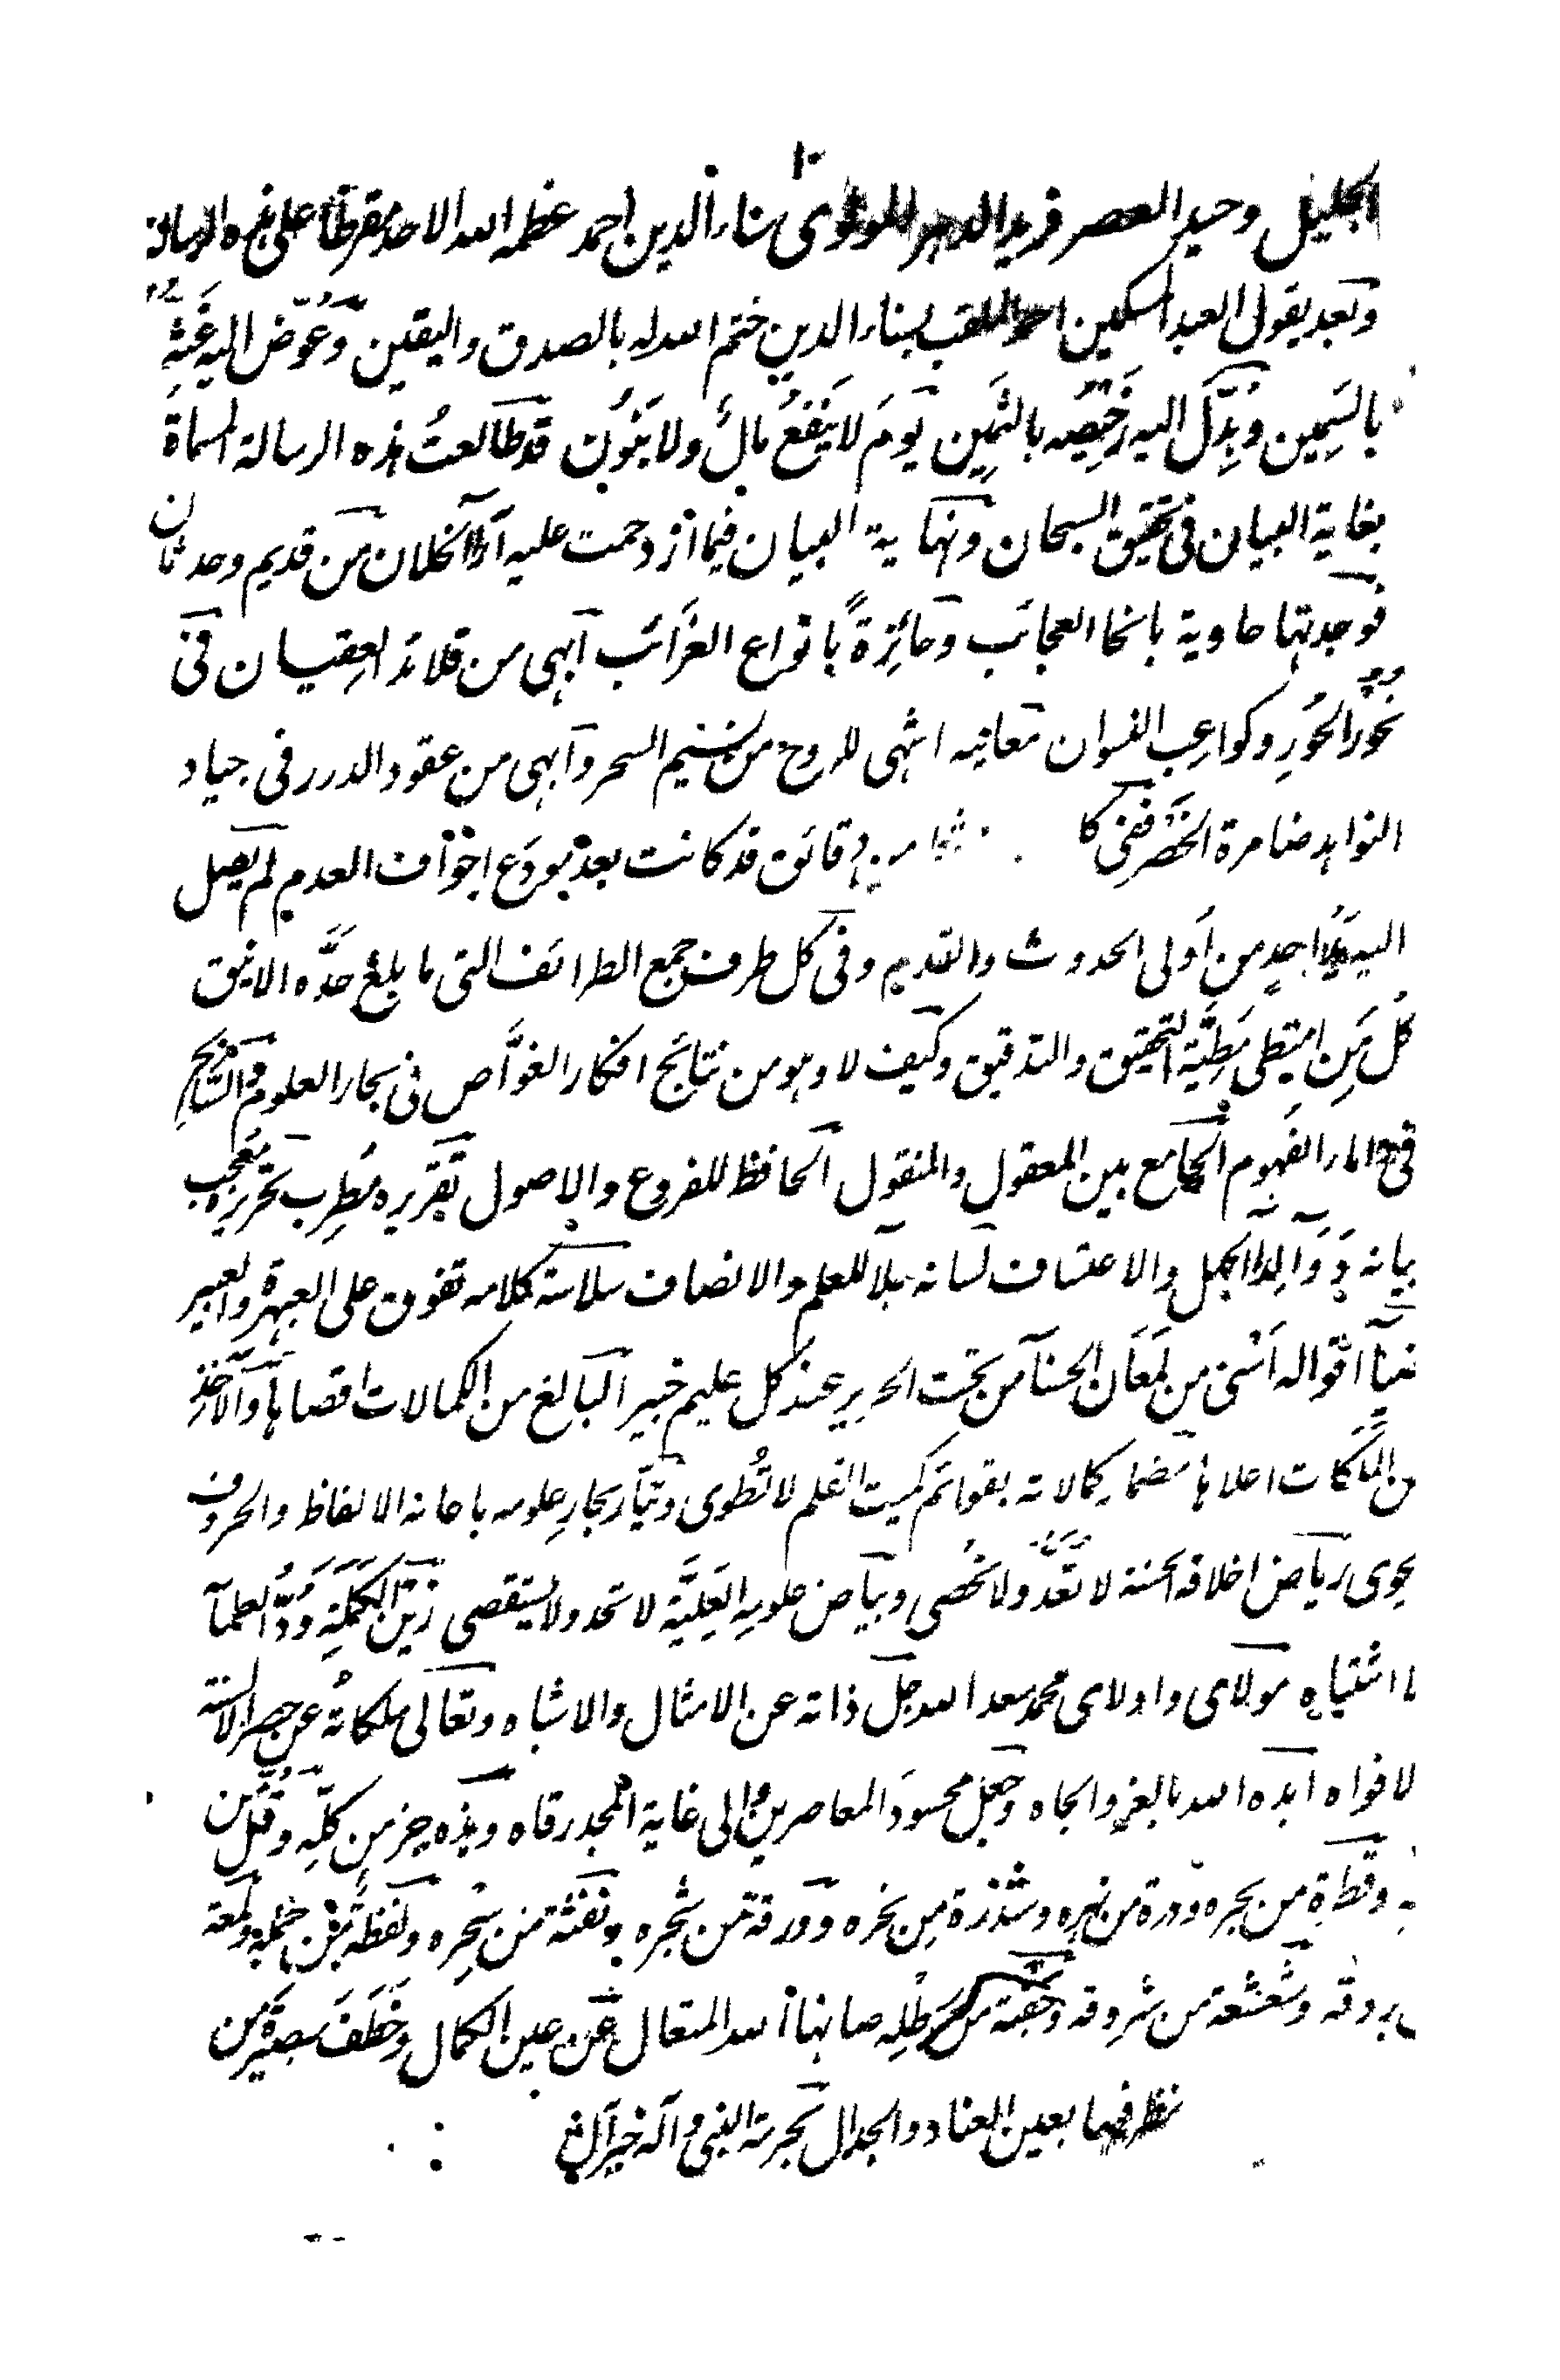 الجليل وحيد العصر فريد الدهر المولوى سناء الدين احمد عظمه الله الاحد مقرظا على هذه الرسالة
وبعد يقول العبد المسكين احمد الملقب بسناء الدين ختم الله له بالصدق واليقين وعوض اليه غثه
بالسَمِين وبدّل اليه رَخِيْصه بالثمِين يَومَ لا يَنفَعُ مالٌ ولا بَنُون قد طالعتُ هذه الرسالة المسماة
بغاية البيان فى تحقيق السبحان ونهاية البيان فيما ازدحمت عليه آراء الخلان من قديم وحدثان
فوجدتها حاوية بانحا العجائب وحائزةً بانواع الغرائب ابهى من قلائد العِقيان فى
نحور الحُورِ وكواعِب النسوان معانيه اشهى للروح من نسيم السحر وابهى من عقود الدرر فى جياد
النواهد ضامرة الخَصْر ففى كل من دقائق قد كانت بعد بودع اجواف العدم لم يصل
اليه احدٍ من اُولى الحدوث والقدم وفى كل طرف جمع الطرائف التى ما بلغ حدَّه الانيق
كُل مَن امتطى مَطِيَّة التحقيق والتدقيق وكيف لا وهو من نتائج افكار الغوَّاص فى بحار العلوم السابح
فى انهار الفهوم الجامع بين المعقول والمنقول الحافظ للفروع والاصول تقريره مُطرِب تحريره معجب
بيانه دواء لداء الجهل والاعتساف لسانه للعلم والانصاف سلاسة كلامه تفوق على العبهرة والعبير
ضياء اقواله اَسْنى مِن لمَعَان الحسناء من تحت الحرير عند كل عليم خبير البالغ من الكمالات اقصاها والآخذ
من الملكات اعلاها مضمار كمالاته بقوائم كميت القلم لا تُطوى وتيار بحارِ علومه باحانه الالفاظ والحروف
يحوى رياض اخلاقه الحسنة لا تُعَدّ ولا تُحصى وبياض علومه العَلِيَّة لا تحد ولا يستقصى زين الكَمَلَة وَدُّ العلماء
اشتياه مولاى واولاى محمد سعد الله جل ذاته عن الامثال والاشباه وتعالى ملكاته عن حصر الالسنة
لافواه ابده الله بالعز والجاه وجعل محسودَ المعاصرين والى غاية المجد رقاه وهذه جزء مِن كلِّه وقُلّ مِن
وقَطرة مِن بحره ودرة من نهره وشذرة مِن نحره وورقة من شجره ونفثة من سِحره ولفظة من جمله ولمعة
بروقه وشعشعة من شروقه وحَفنة من رَطْلِه صانها الله المتعال عن عين الكمال وخَطَفَ بصيرة من
نظر فيها بعين العناد والجدال بحرمة النبى وآله خير آل